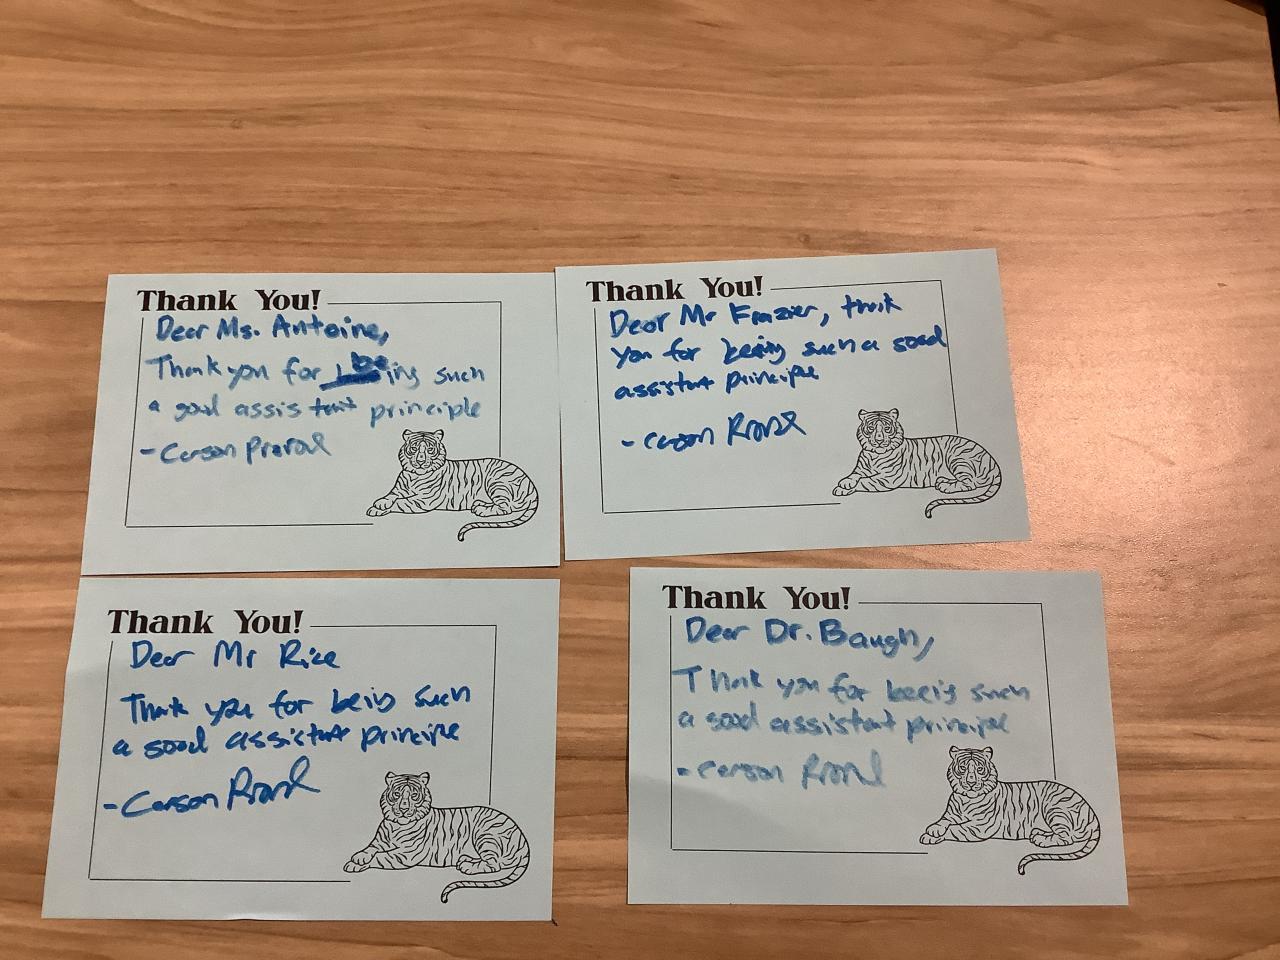 Thank You!
Dear Ms. Antoine,
Thank you for being such
a good assistant principle
- Carson
Thank You!
Dear Mr Frazier, thank
you for being such a good
assistant principle
- Carson
Thank You!
Dear Mr Rice
Thank you for being such
a good assistant principle
- Carson
Thank You!
Dear Dr. Baugh,
Thank you for being such
a good assistant principle
- Carson